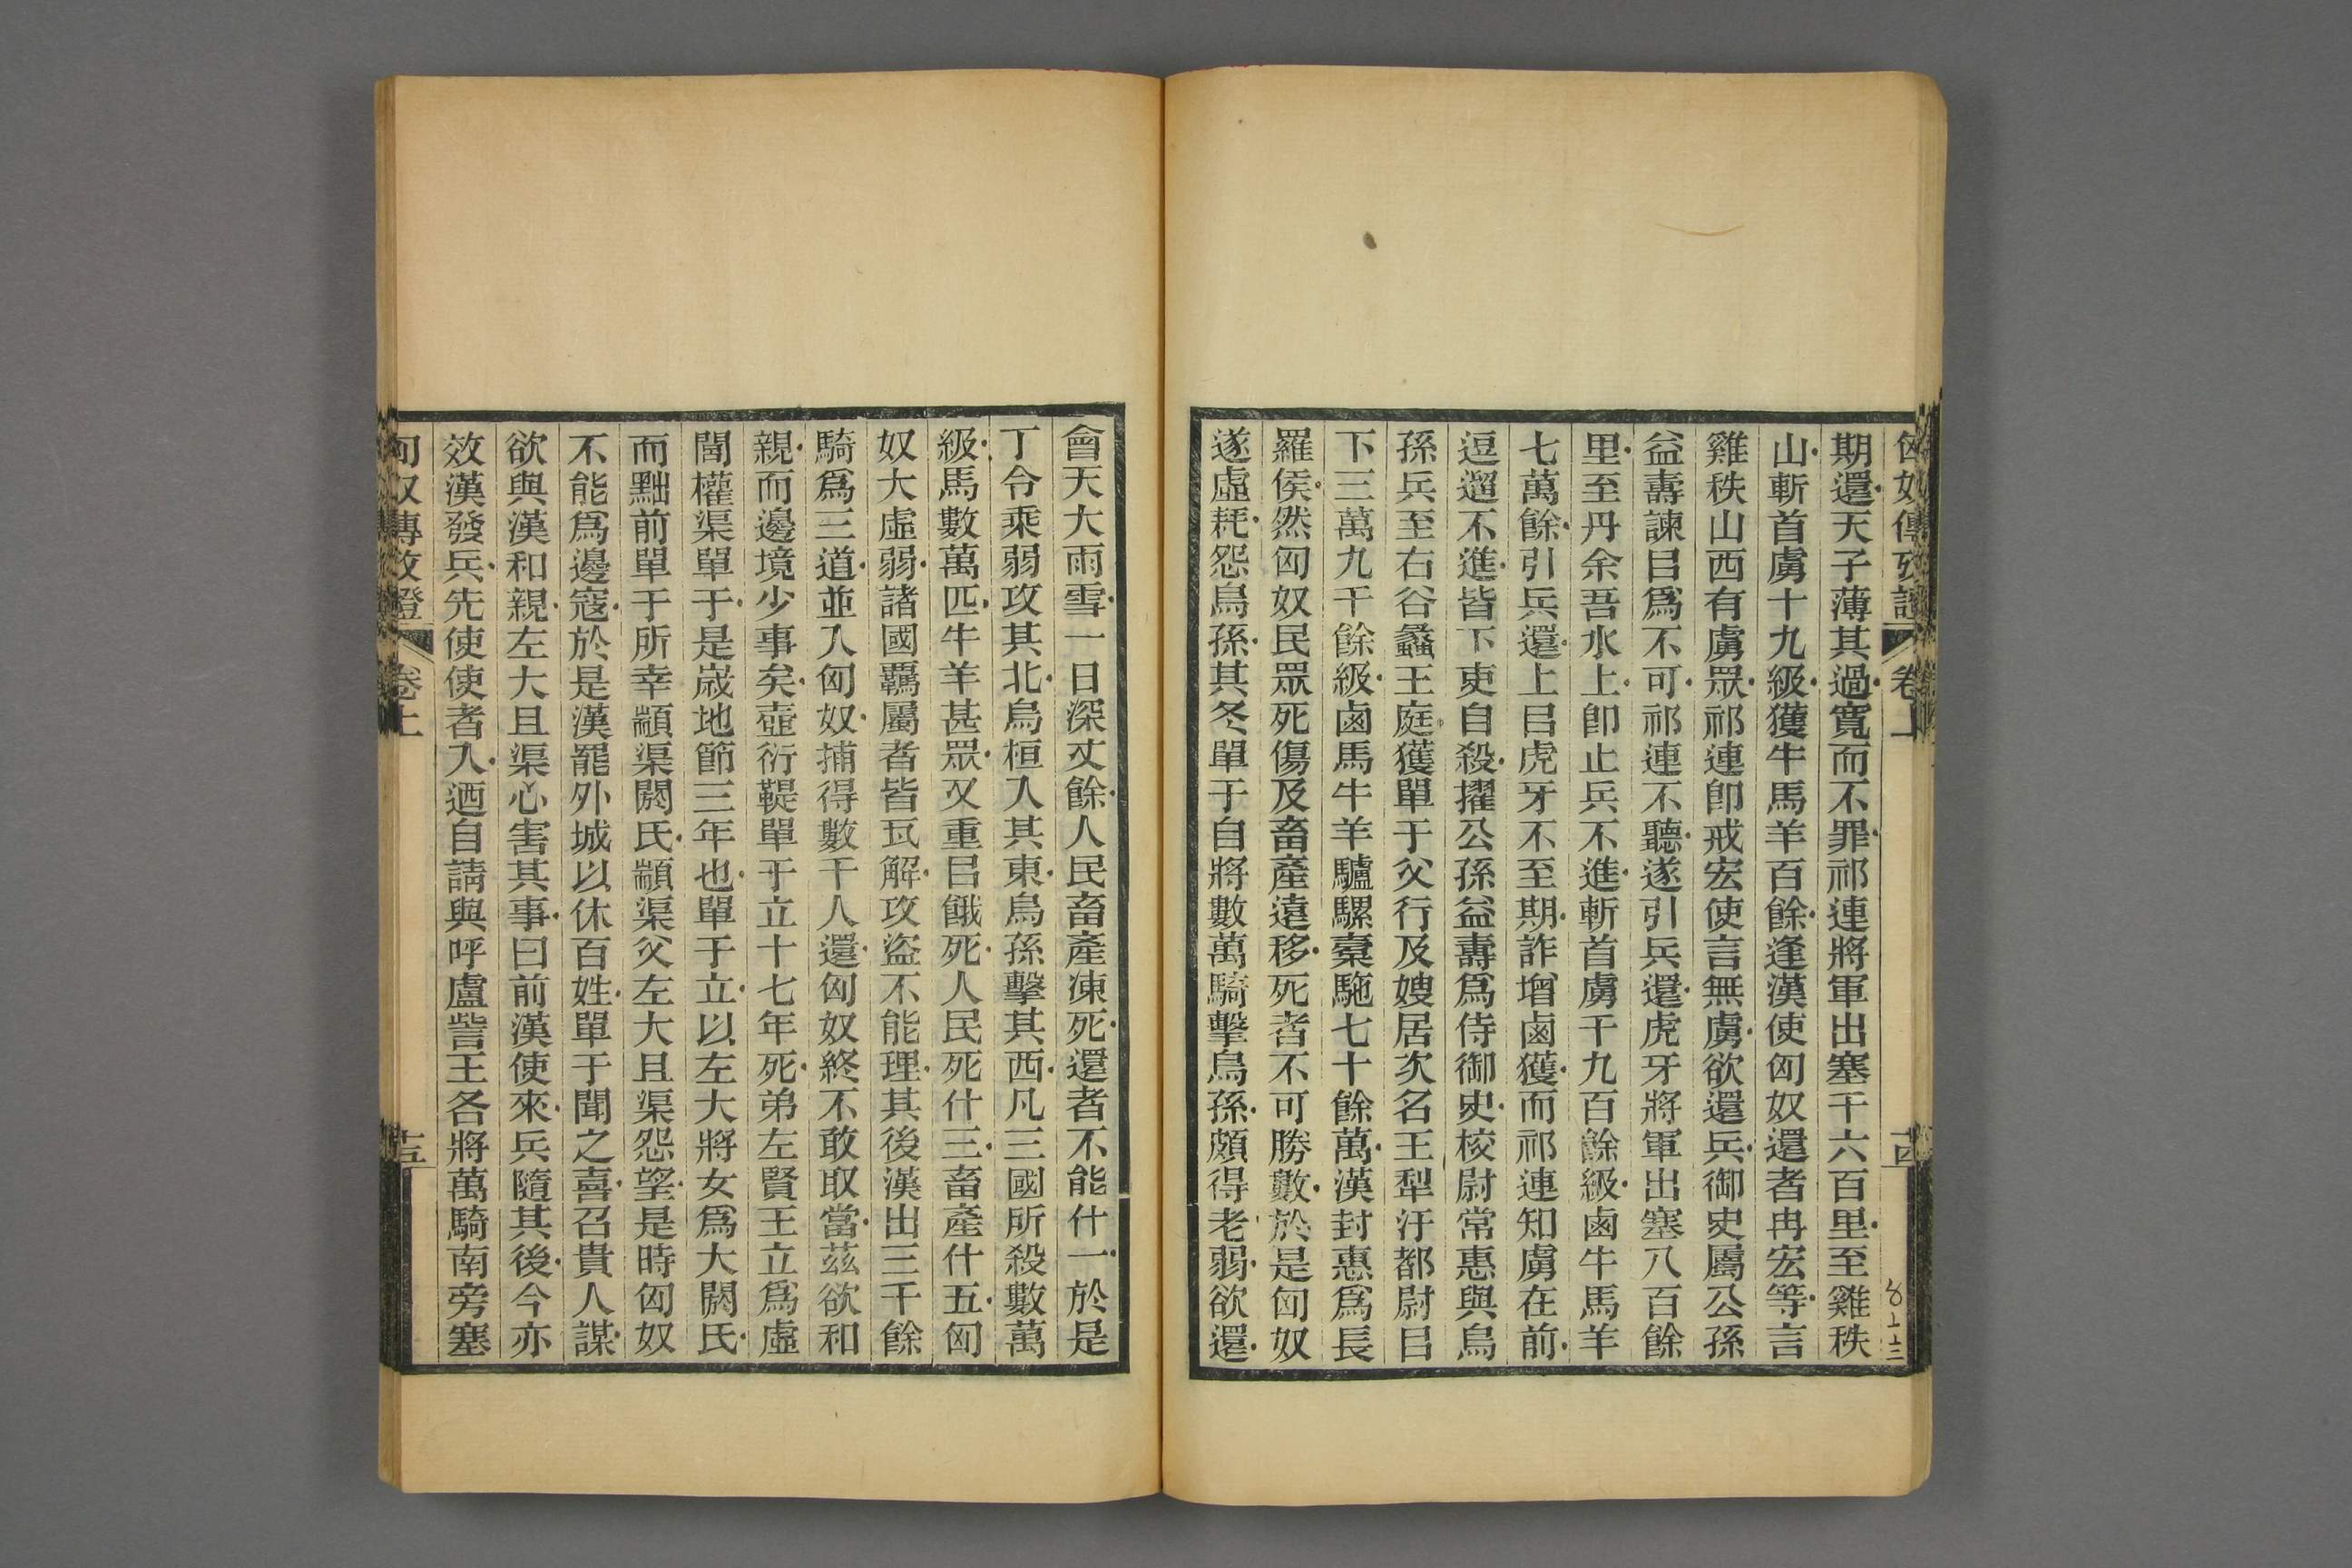 匈奴傳攷證 卷上 十四
期還天子薄其過寬而不罪祁連將軍出塞千六百里至雞秩
山斬首虜十九級獲牛馬羊百餘逢漢使匈奴還者冉宏等言
雞秩山西有虜眾祁連卽戒宏使言無虜欲還兵御史屬公孫
益壽諫㠯爲不可祁連不聽遂引兵還虎牙將軍出塞八百餘
里至丹余吾水上卽止兵不進斬首虜千九百餘級鹵牛馬羊
七萬餘引兵還上㠯虎牙不至期詐增鹵獲而祁連知虜在前
逗遛不進皆下吏自殺擢公孫益壽爲侍御史校尉常惠與烏
孫兵至右谷蠡王庭獲單于父行及嫂居次名王犁汙都尉㠯
下三萬九千餘級鹵馬牛羊驢騾橐駞七十餘萬漢封惠爲長
羅侯然匈奴民眾死傷及畜產遠移死者不可勝數於是匈奴
遂虛耗怨烏孫其冬單于自將數萬騎擊烏孫頗得老弱欲還
會天大雨雪一日深丈餘人民畜產凍死還者不能什一於是
丁令乘弱攻其北烏桓入其東烏孫擊其西凡三國所殺數萬
級馬數萬匹牛羊甚眾又重㠯餓死人民死什三畜產什五匈
奴大虛弱諸國羈屬者皆瓦解攻盜不能理其後漢出三千餘
騎爲三道並入匈奴捕得數千人還匈奴終不敢取當茲欲和
親而邊境少事矣壺衍鞮單于立十七年死弟左賢王立爲虛
閭權渠單于是歲地節三年也單于立以左大將女爲大閼氏
而黜前單于所幸顓渠閼氏顓渠父左大且渠怨望是時匈奴
不能爲邊寇於是漢罷外城以休百姓單于聞之喜召貴人謀
欲與漢和親左大且渠心害其事曰前漢使來兵隨其後今亦
效漢發兵先使使者入迺自請與呼盧訾王各將萬騎南旁塞
匈奴傳攷證 卷上 十五